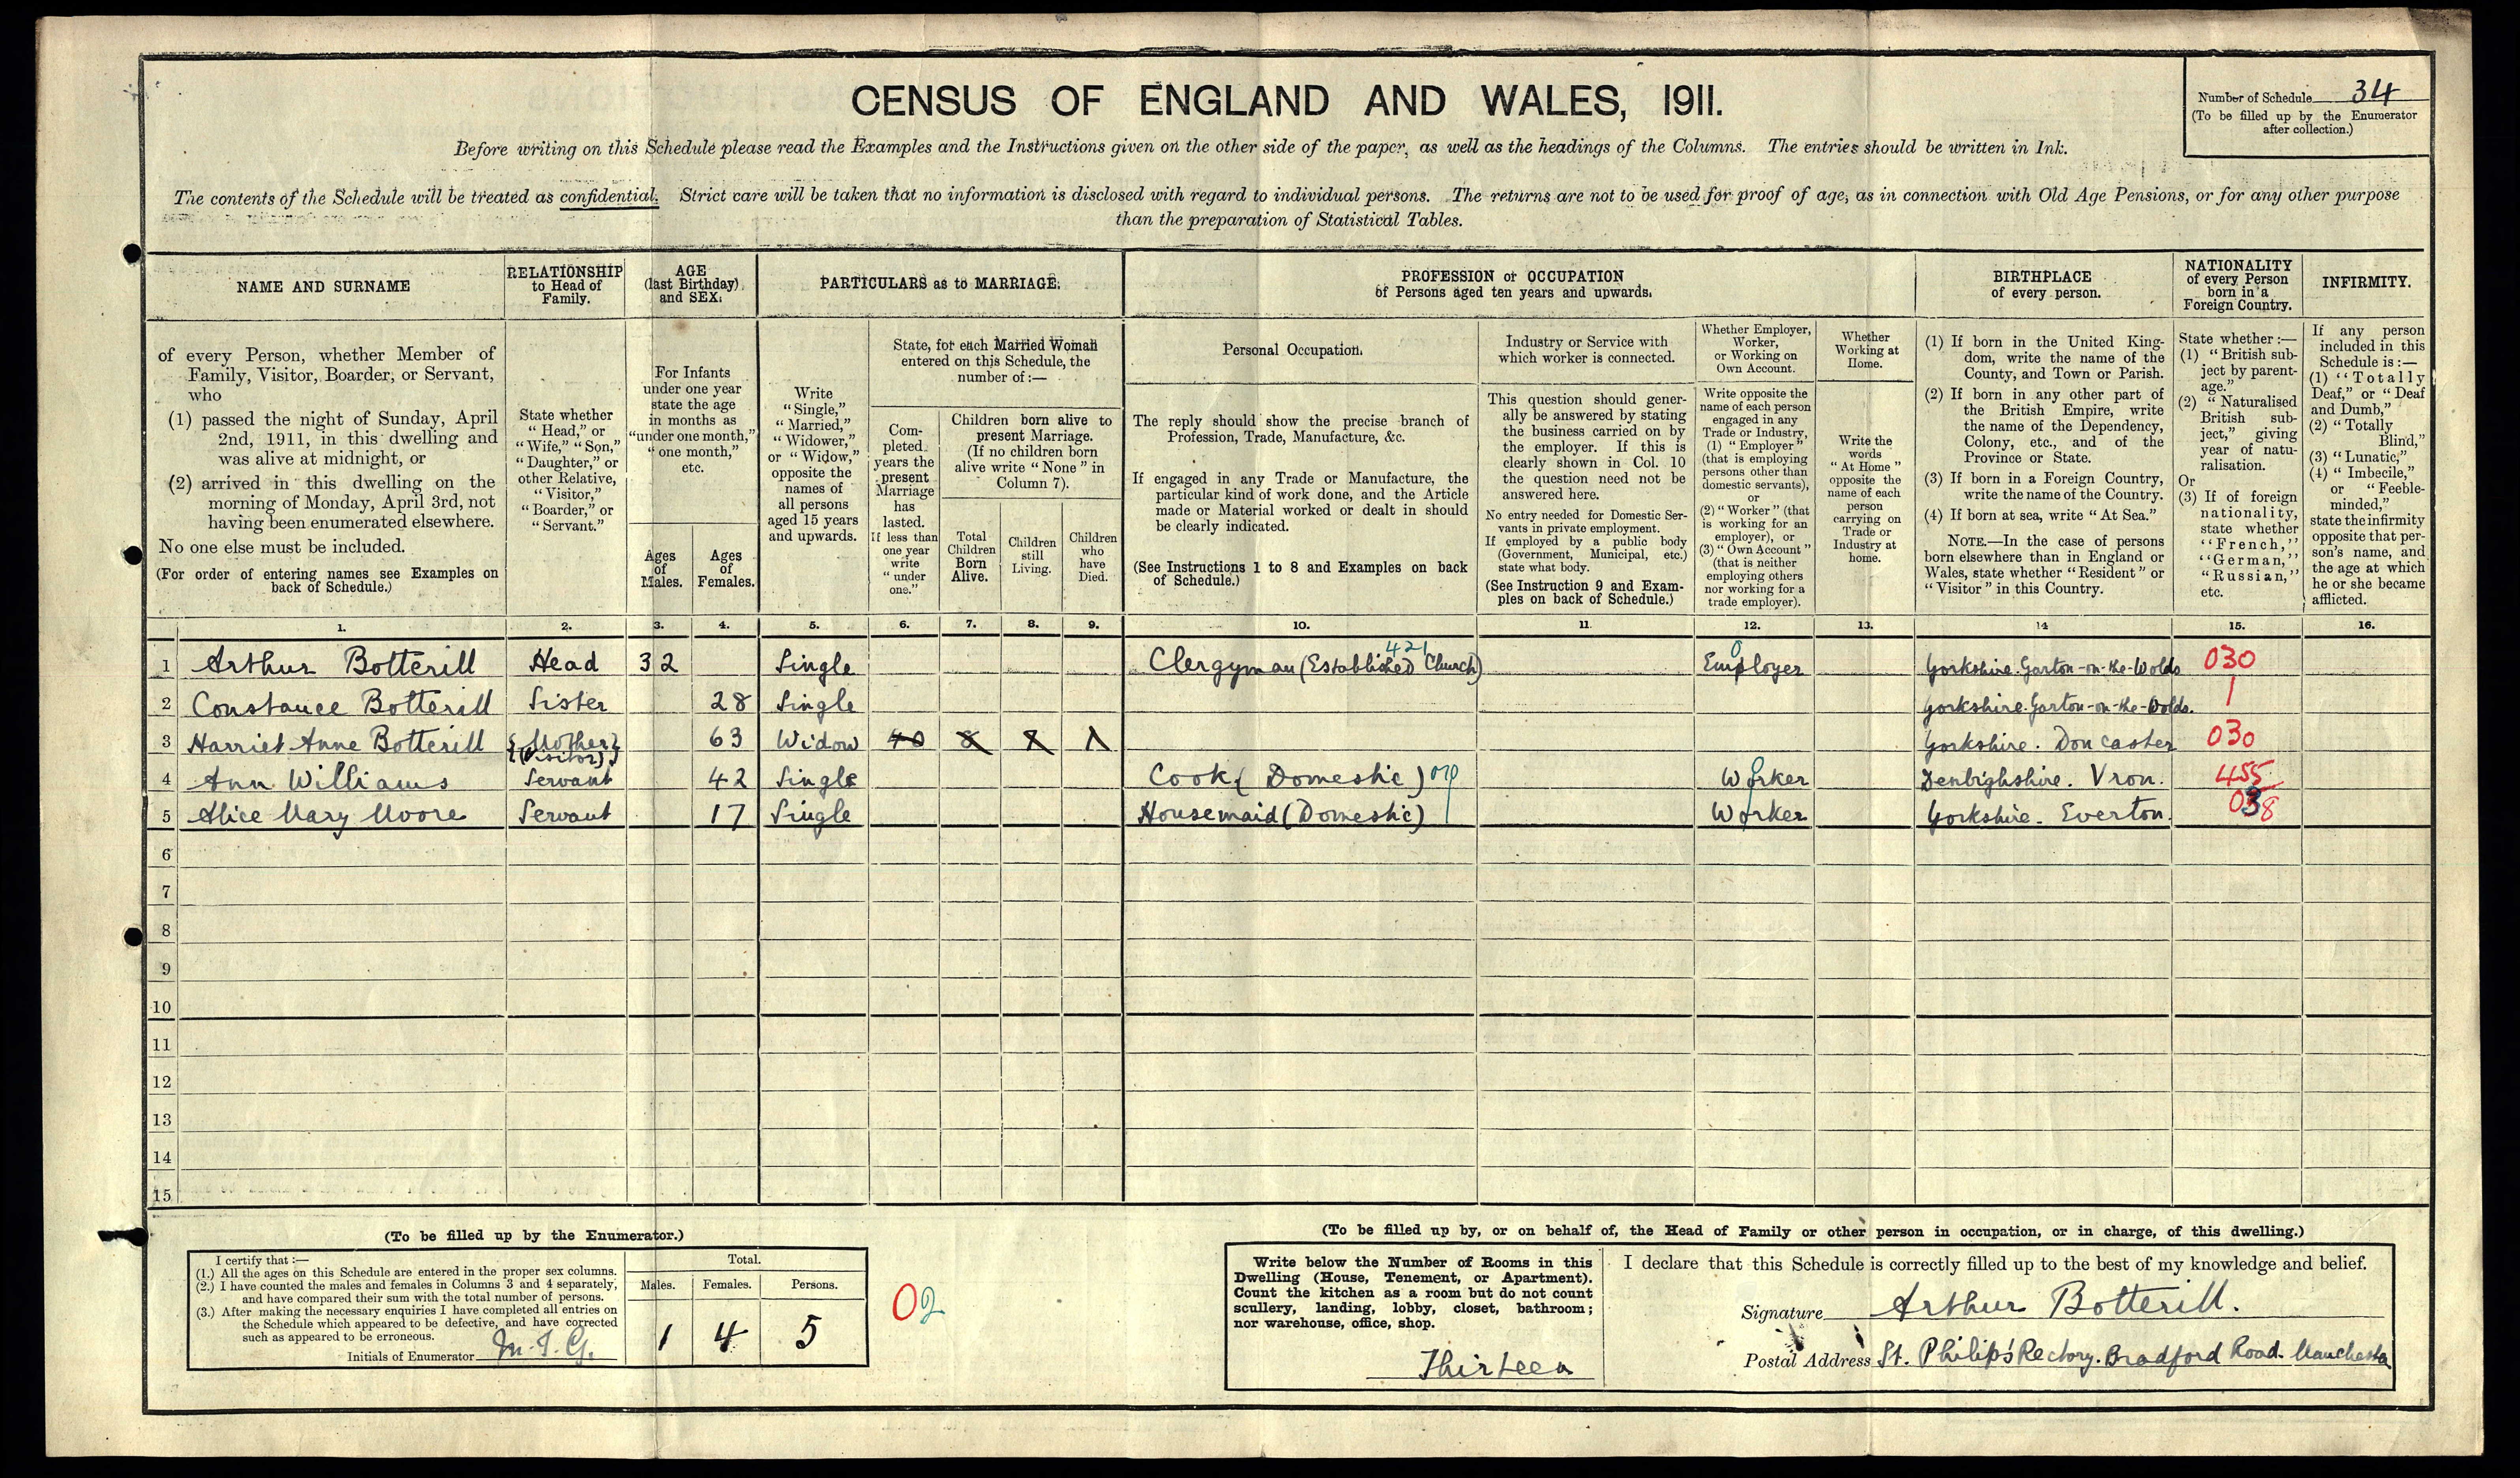 CENSUS OF ENGLAND AND WALES, 1911.
Number of Schedule 34
(To be filled up by the Enumerator
after collection.)
Before writing on this Schedule please read the Examples and the Instructions given on the other side of the paper, as well as the headings of the Columns. The entries should be written in Ink.
The contents of the Schedule will be treated as confidential. Strict care will be taken that no information is disclosed with regard to individual persons. The returns are not to be used for proof of age, as in connection with Old Age Pensions, or for any other purpose
than the preparation of Statistical Tables.
NAME AND SURNAME
of every Person, whether Member of
Family, Visitor, Boarder, or Servant,
who
(1) passed the night of Sunday, April
2nd, 1911, in this dwelling and
was alive at midnight, or
(2) arrived in this dwelling on the
morning of Monday, April 3rd, not
having been enumerated elsewhere.
No one else must be included.
(For order of entering names see Examples on
back of Schedule.)
RELATIONSHIP
to Head of
Family.
State whether
"Head," or
"Wife," "Son,"
"Daughter," or
other Relative,
"Visitor,"
"Boarder," or
"Servant."
AGE
(last Birthday)
and SEX.
For Infants
under one year
state the age
in months as
"under one month,"
"one month,"
etc.
Ages
of
Males.
Ages
of
Females.
PARTICULARS as to MARRIAGE.
Write
"Single,"
"Married,"
"Widower,"
or "Widow,"
opposite the
names of
all persons
aged 15 years
and upwards.
State, for each Married Woman
entered on this Schedule, the
number of:—
Com-
pleted
years the
present
Marriage
has
lasted.
If less than
one year
write
"under
one."
Children born alive to
present Marriage.
(If no children born
alive write "None" in
Column 7).
Total
Children
Born
Alive.
Children
still
Living.
Children
who
have
Died.
PROFESSION or OCCUPATION
of Persons aged ten years and upwards.
Personal Occupation.
The reply should show the precise branch of
Profession, Trade, Manufacture, &c.
If engaged in any Trade or Manufacture, the
particular kind of work done, and the Article
made or Material worked or dealt in should
be clearly indicated.
(See Instructions 1 to 8 and Examples on back
of Schedule.)
Industry or Service with
which worker is connected.
This question should gener-
ally be answered by stating
the business carried on by
the employer. If this is
clearly shown in Col. 10
the question need not be
answered here.
No entry needed for Domestic Ser-
vants in private employment.
If employed by a public body
(Government, Municipal, etc.)
state what body.
(See Instruction 9 and Exam-
ples on back of Schedule.)
Whether Employer,
Worker,
or Working on
Own Account.
Write opposite the
name of each person
engaged in any
Trade or Industry,
(1) "Employer"
(that is employing
persons other than
domestic servants),
or
(2) "Worker" (that
is working for an
employer), or
(3) "Own Account"
(that is neither
employing others
nor working for a
trade employer).
Whether
Working at
Home.
Write the
words
"At Home"
opposite the
name of each
person
carrying on
Trade or
Industry at
home.
BIRTHPLACE
of every person.
(1) If born in the United King-
dom, write the name of the
County, and Town or Parish.
(2) If born in any other part of
the British Empire, write
the name of the Dependency,
Colony, etc., and of the
Province or State.
(3) If born in a Foreign Country,
write the name of the Country.
(4) If born at sea, write "At Sea."
NOTE.—In the case of persons
born elsewhere than in England or
Wales, state whether "Resident" or
"Visitor" in this Country.
NATIONALITY
of every Person
born in a
Foreign Country.
State whether:—
(1) "British sub-
ject by parent-
age."
(2) "Naturalised
British sub-
ject," giving
year of natu-
ralisation.
Or
(3) If of foreign
nationality,
state whether
"French,"
"German,"
"Russian,"
etc.
INFIRMITY.
If any person
included in this
Schedule is:—
(1) "Totally
Deaf," or "Deaf
and Dumb,"
(2) "Totally
Blind,"
(3) "Lunatic,"
(4) "Imbecile,"
or "Feeble-
minded,"
state the infirmity
opposite that per-
son's name, and
the age at which
he or she became
afflicted.
1. 2. 3. 4. 5. 6. 7. 8. 9. 10. 11. 12. 13. 14 15. 16.
421 0
1 Arthur Botterill Head 32 Single Clergyman (Established Church) Employer Yorkshire. Garton-on-the-Wolds 030
2 Constance Botterill Sister 28 Single Yorkshire. Garton-on-the-Wolds. 1
3 Harriet Anne Botterill {Mother} 63 Widow 40 8 Yorkshire. Doncaster 030
{(Visitor)}
4 Ann Williams Servant 42 Single Cook (Domestic) Worker Denbighshire. Vron. 455
5 Alice Mary Moore Servant 17 Single Housemaid (Domestic) Worker Yorkshire. Everton. 038
6
7
8
9
10
11
12
13
14
15
(To be filled up by the Enumerator.)
I certify that:—
(1.) All the ages on this Schedule are entered in the proper sex columns.
(2.) I have counted the males and females in Columns 3 and 4 separately,
and have compared their sum with the total number of persons.
(3.) After making the necessary enquiries I have completed all entries on
the Schedule which appeared to be defective, and have corrected
such as appeared to be erroneous.
Initials of Enumerator M.T.G.
Total.
Males. Females. Persons.
1 4 5
02
(To be filled up by, or on behalf of, the Head of Family or other person in occupation, or in charge, of this dwelling.)
Write below the Number of Rooms in this
Dwelling (House, Tenement, or Apartment).
Count the kitchen as a room but do not count
scullery, landing, lobby, closet, bathroom;
nor warehouse, office, shop.
Thirteen
I declare that this Schedule is correctly filled up to the best of my knowledge and belief.
Signature Arthur Botterill.
Postal Address St. Philip's Rectory. Bradford Road. Manchester